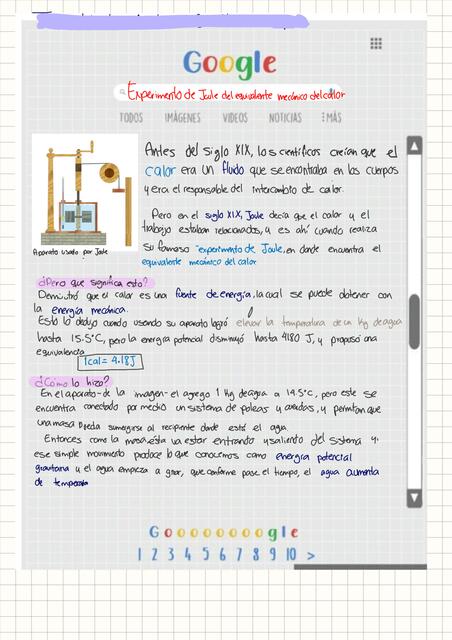 Google
Experimento de Joule del equivalente mecánico del calor
TODOS IMÁGENES VIDEOS NOTICIAS MÁS
Antes del siglo XIX, los científicos creían que el
calor era un fluido que se encontraba en los cuerpos
y era el responsable del intercambio de calor.
Pero en el siglo XIX, Joule decía que el calor y el
trabajo estaban relacionados, y es ahí cuando realiza
su famoso "experimento de Joule, en donde encuentra el
equivalente mecánico del calor
Aparato usado por Joule
¿Pero que significa esto?
Demostró que el calor es una fuente de energía, la cual se puede obtener con
la energía mecánica.
Esto lo dedujo cuando usando su aparato logró elevar la temperatura de un Kg de agua
hasta 15.5°C, pero la energía potencial disminuyó hasta 4180 J, y propuso una
equivalencia
1cal = 4.18J
¿Cómo lo hizo?
En el aparato de la imagen el agrego 1 Kg de agua a 14.5°C, pero este se
encuentra conectado por medio un sistema de poleas y que
una masa pueda sumergirse al recipiente donde está el agua
Entonces como la masa esta va estar entrando y saliendo del sistema y
ese simple movimiento produce lo que conocemos como energía potencial
gravitatoria y el agua empieza a girar, que conforme pase el tiempo, el agua aumenta
de temperatura
Gooooooogle
1 2 3 4 5 6 7 8 9 10 >